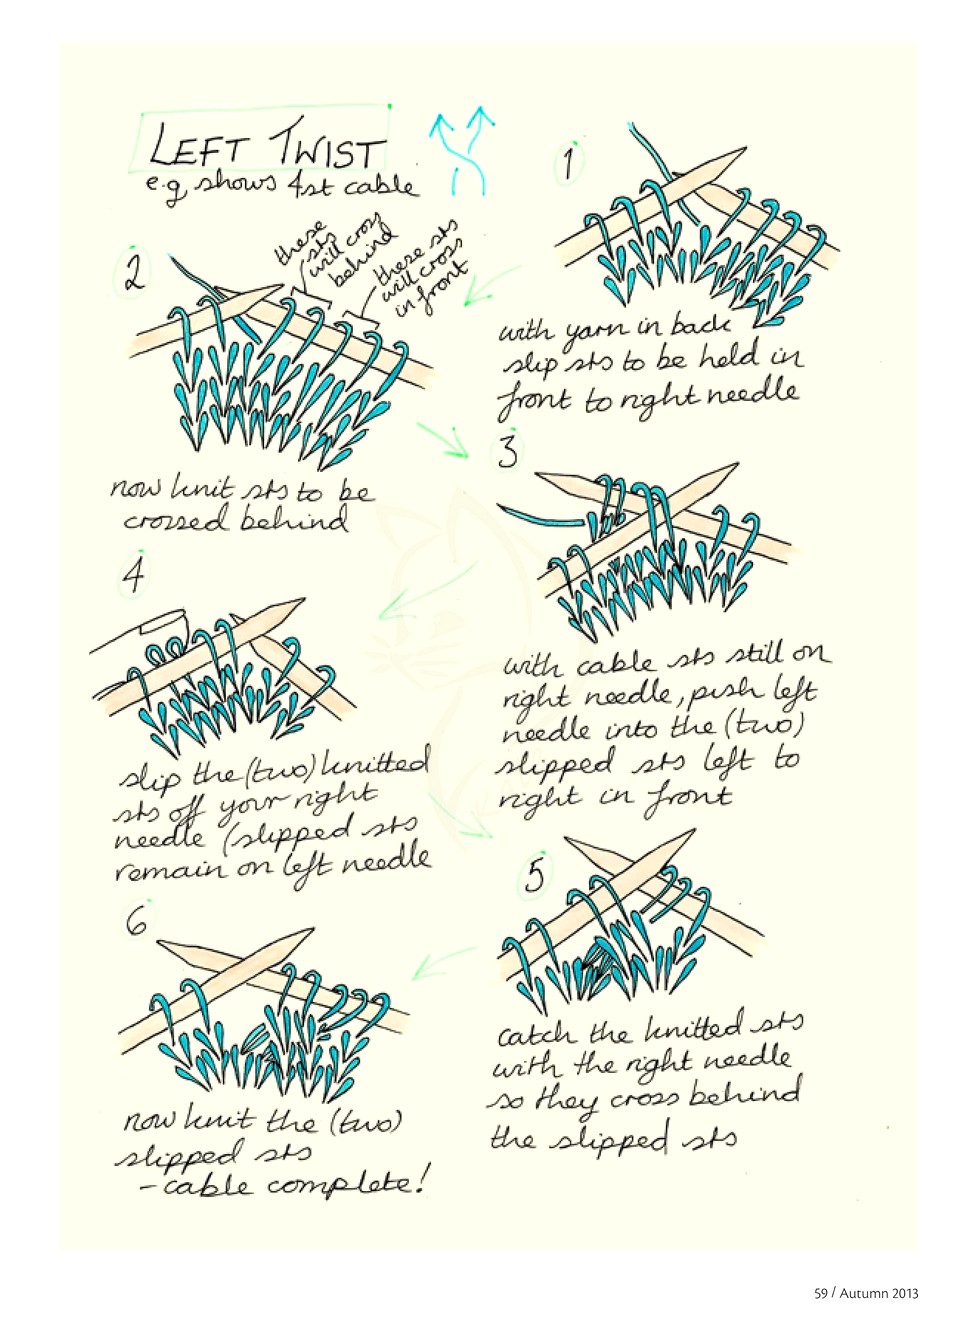 LEFT TWIST
e.g, shows 4st cable
1
with yarn in back
slip sts to be held in
front to right needle
2
these
sts
will cross
behind
these sts
will cross
in front
now knit sts to be
crossed behind
3
with cable sts still on
right needle, push left
needle into the (two)
slipped sts left to
right in front
4
slip the (two) knitted
sts off your right
needle (slipped sts
remain on left needle
5
catch the knitted sts
with the right needle
so they cross behind
the slipped sts
6
now knit the (two)
slipped sts
- cable complete!
59 / Autumn 2013